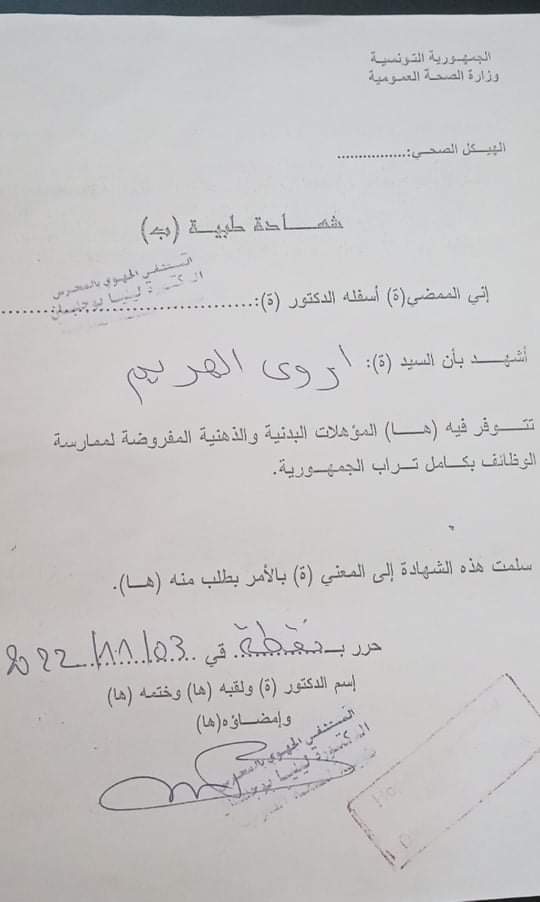 الجمهورية التونسية
وزارة الصحة العمومية
الهيكل الصحي:................
شهادة طبية (ب)
المستشفى الجهوي بالمحرس
الدكتورة لينا بوجلبان
إني الممضي(ة) أسفله الدكتور (ة):................................
أشهد بأن السيد (ة): اروى الهريم
تتوفر فيه (هـا) المؤهلات البدنية والذهنية المفروضة لممارسة
الوظائف بكامل تراب الجمهورية.
سلمت هذه الشهادة إلى المعني (ة) بالأمر بطلب منه (هـا).
حرر بـ نقطة في 2022/11/03
إسم الدكتور (ة) ولقبه (ها) وختمه (ها)
وإمضاؤه(ها)
المستشفى الجهوي بالمحرس
الدكتورة لينا